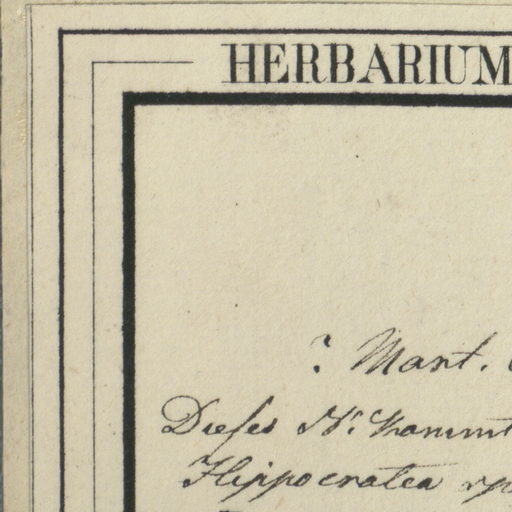 HERBARIUM
? Mart.
Dieses Nr.
Hippocratea